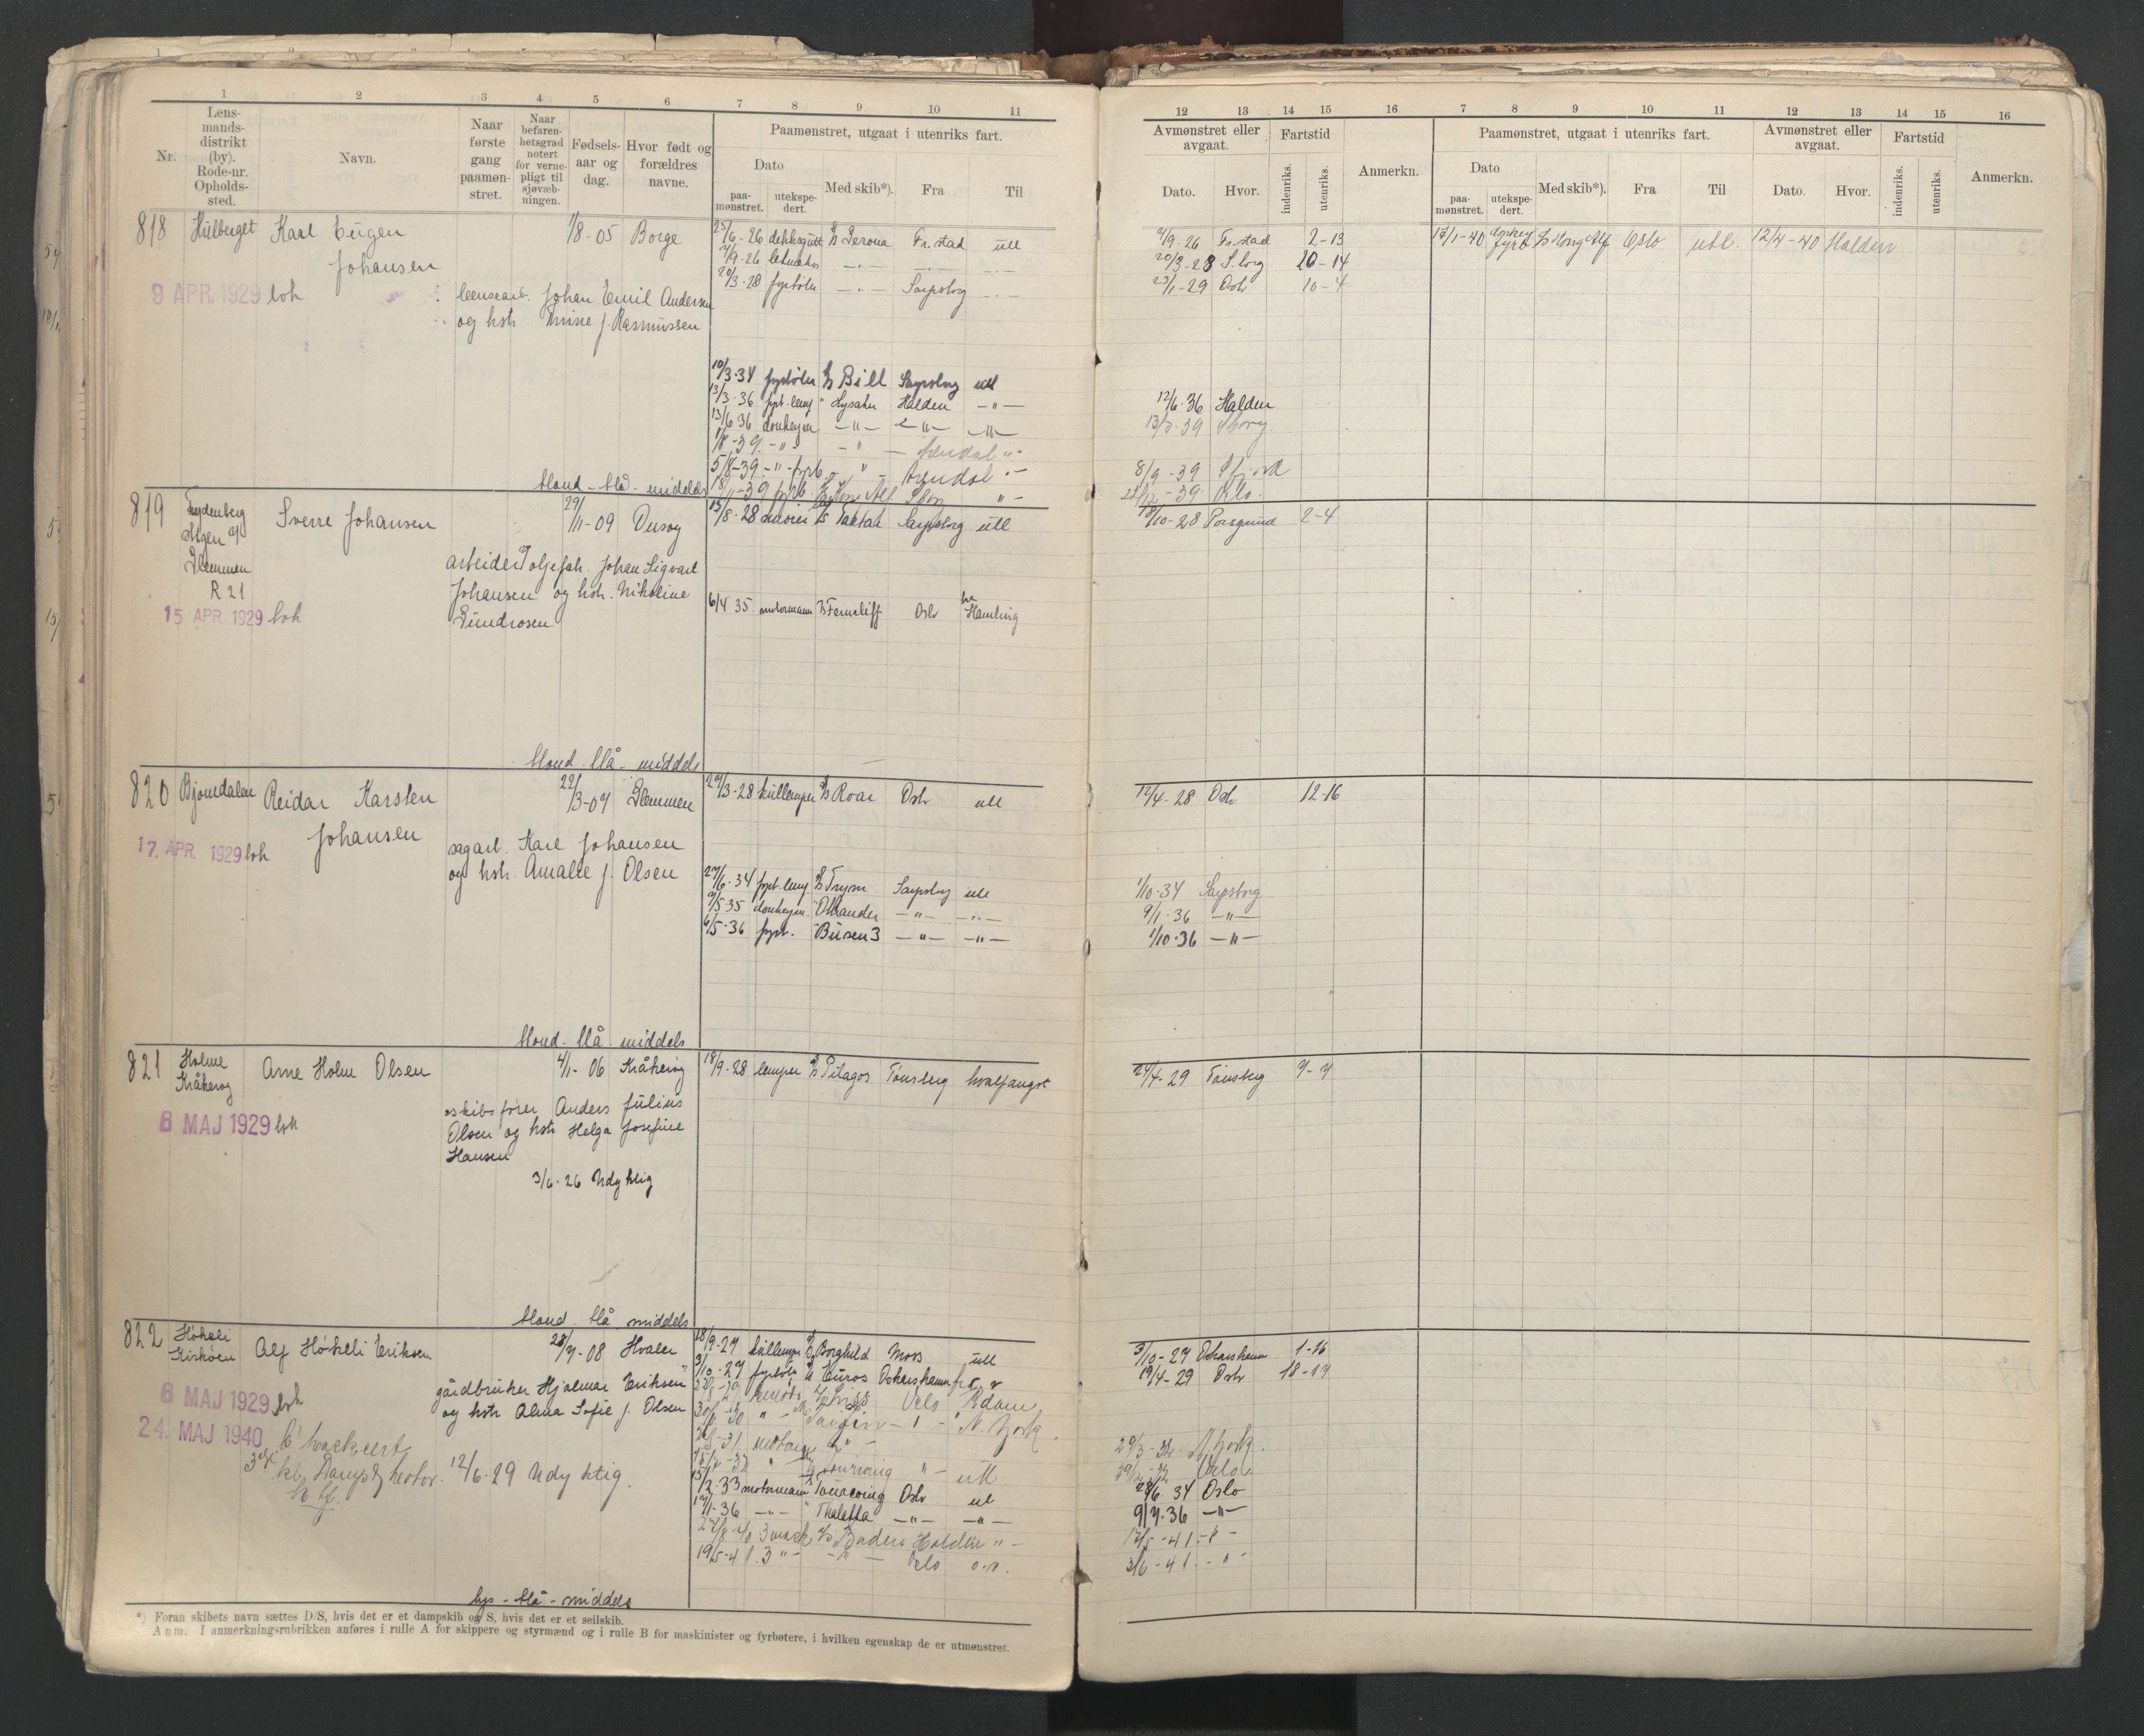 1 2 3 4 5 6 7 8 9 10 11
Nr. Lensmandsdistrikt (by). Rode-nr. Opholdssted. Navn. Naar første gang paamønstret. Naar befarenhetsgrad notert for vernepligt til sjøvæbningen. Fødselsaar og dag. Hvor født og forældres navne. Paamønstret, utgaat i utenriks fart.
Dato paamønstret. utekspedert. Med skib*). Fra Til
818 Hulberget Karl Eugen Johansen 1/8-05 Borge
9 APR. 1929 loh
lensearb. Johan Emil Andersen
og hstr Mine f. Rasmussen
25/6-26 dekksgutt D/S Verona Fr.stad utl
7/9-26 letmatros -"- -"- -"-
20/3-28 fyrbøter -"- Sarpsborg -"-
10/3-34 fyrbøter D/S Bill Sarpsborg utl
13/3-36 fyrb.lemp " Lysaker Halden -"-
13/6 36 donkeym. -"- -"- -"-
1/8-39 -"- -"- Arendal "-
5/8-39 -"- fyrb -"- Arendal "-
18/11-39 fyrb. Kong Alf Sborg "-
blond - blå - middels
819 Frydenberg Glemmen R 21 Sverre Johansen 29/11-09 Onsøy
15 APR. 1929 loh
arbeider v/ oljefab. Johan Sigvart
Johansen og hstr. Nikoline
Gundrosen
13/8-28 D/S Taktaa Sarpsborg utl
6/4 35 motormann Ferncliff Oslo Hamling
blond - blå - middels
820 Bjørndalen Reidar Karsten Johansen 22/3-07 Glemmen
17. APR. 1929 loh
sagarb. Karl Johansen
og hstr. Amalie f. Olsen
29/3-28 kullemper D/S Roar Oslo utl
27/6-34 fyrb.lemp D/S Trym Sarpsborg utl
9/5 35 donkeym. " -"- -"-
6/5-36 fyrb. " Busen 3 -"- -"-
blond - blå - middels
821 Holme Kråkerøy Arne Holm Olsen 4/1-06 Kråkerøy
6 MAJ 1929 loh
skibsfører Anders Julius
Olsen og hstr Helga Josefine
Hansen
3/6-26 Udyktig
18/9-28 lemper D/S Pelagos Tønsberg hvalfangst
blond - blå - middels
822 Høkeli Kirkøen Alf Høkeli Eriksen 28/7-08 Hvaler
6 MAJ 1929 loh
24. MAJ 1940
gårdbruker Hjalmar Eriksen
og hstr Alma Sofie f. Olsen
12/6-29 Udyktig.
18/9-27 kullemper D/S Borghild Moss utl
3/10-27 fyrbøter D/S Euros Oskarshamn
Oslo Adam
N. York
15/2 33 motormann Tourcoing Oslo utl
17/1-36 -"- " Thaletta -"- -"-
27/8-40 3 mask D/S Baden Holden "-
19/5-41. 3 "- -"- Oslo
lys - blå - middels
*) Foran skibets navn sættes D/S, hvis det er et dampskib og S, hvis det er et seilskib.
Anm. I anmerkningsrubrikken anføres i rulle A for skippere og styrmænd og i rulle B for maskinister og fyrbøtere, i hvilken egenskap de er utmønstret.
12 13 14 15 16 7 8 9 10 11 12 13 14 15 16
Avmønstret eller avgaat. Fartstid Anmerkn. Paamønstret, utgaat i utenriks fart. Avmønstret eller avgaat. Fartstid Anmerkn.
Dato. Hvor. indenriks. utenriks. Dato paamønstret. utekspedert. Med skib*). Fra Til Dato. Hvor. indenriks. utenriks.
7/9-26 Fr.stad 2-13 17/1-40 donkey fyrb D/S Kong Alf Oslo utl. 12/4-40 Halden
20/3-28 S.borg 20-14
23/1-29 Oslo 10-4
12/6-36 Halden
13/7-39 Sborg
8/9-39
22/12-39 Oslo.
18/10-28 Porsgrund 2-4
12/4-28 Oslo 12-16
1/10-34 Sarpsborg
9/1-36 -"-
1/10-36 -"-
24/4-29 Tønsberg 7-7
3/10-27 Oskarshamn 1-16
19/4-29 Oslo 18-17
29/3-32 N. York.
Oslo
28/6 34 Oslo
9/7.36 -"-
17/5-41 -"-
3/6-41 - "-